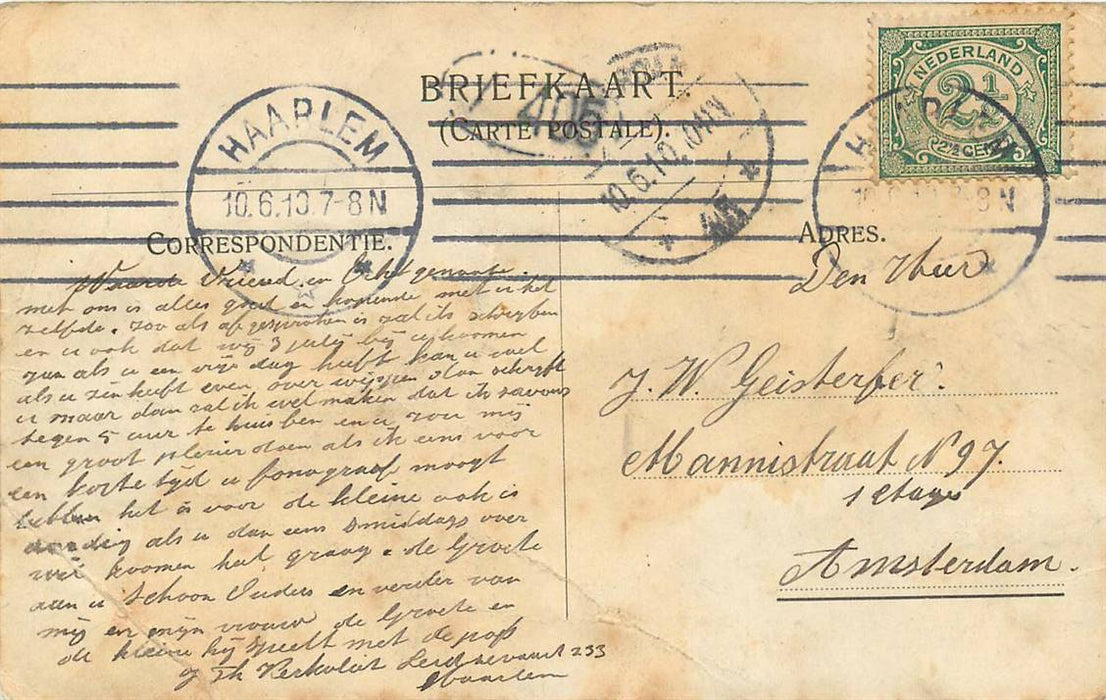 BRIEFKAART.
(CARTE POSTALE).
406
10.6.10. 
NEDERLAND
2½
CENT
HAARLEM
10.6.10.7-8N
CORRESPONDENTIE.
Waarde Vriend en Echtgenoote.
met ons is alles goed en hopende met u het
zelfde. zoo als afgesproken is zal ik schrijven
en u ook dat wij 3 julij bij u koomen
gan als u een vrije dag heeft kan u wel
als u zin heeft even over wippen dan schrijft
u maar dan zal ik wel maken dat ik savons
tegen 5 uur te huis ben en u zou mij
een groot plezier doen als ik eens voor
een korte tijd u fonograaf moogt
hebben het is voor de kleine ook is
aardig als u dan eens smiddags over
wil koomen heel graag. de Groete
aan u Schoon Ouders en verder van
mij en mijn vrouw de Groete en
de kleine hij speelt met de pop
Th Kerkvliet Leidsevaart 233
Haarlem
ADRES.
Den Heer
J. W. Geisterfer.
Mannistraat No 97.
1 Etage
Amsterdam.